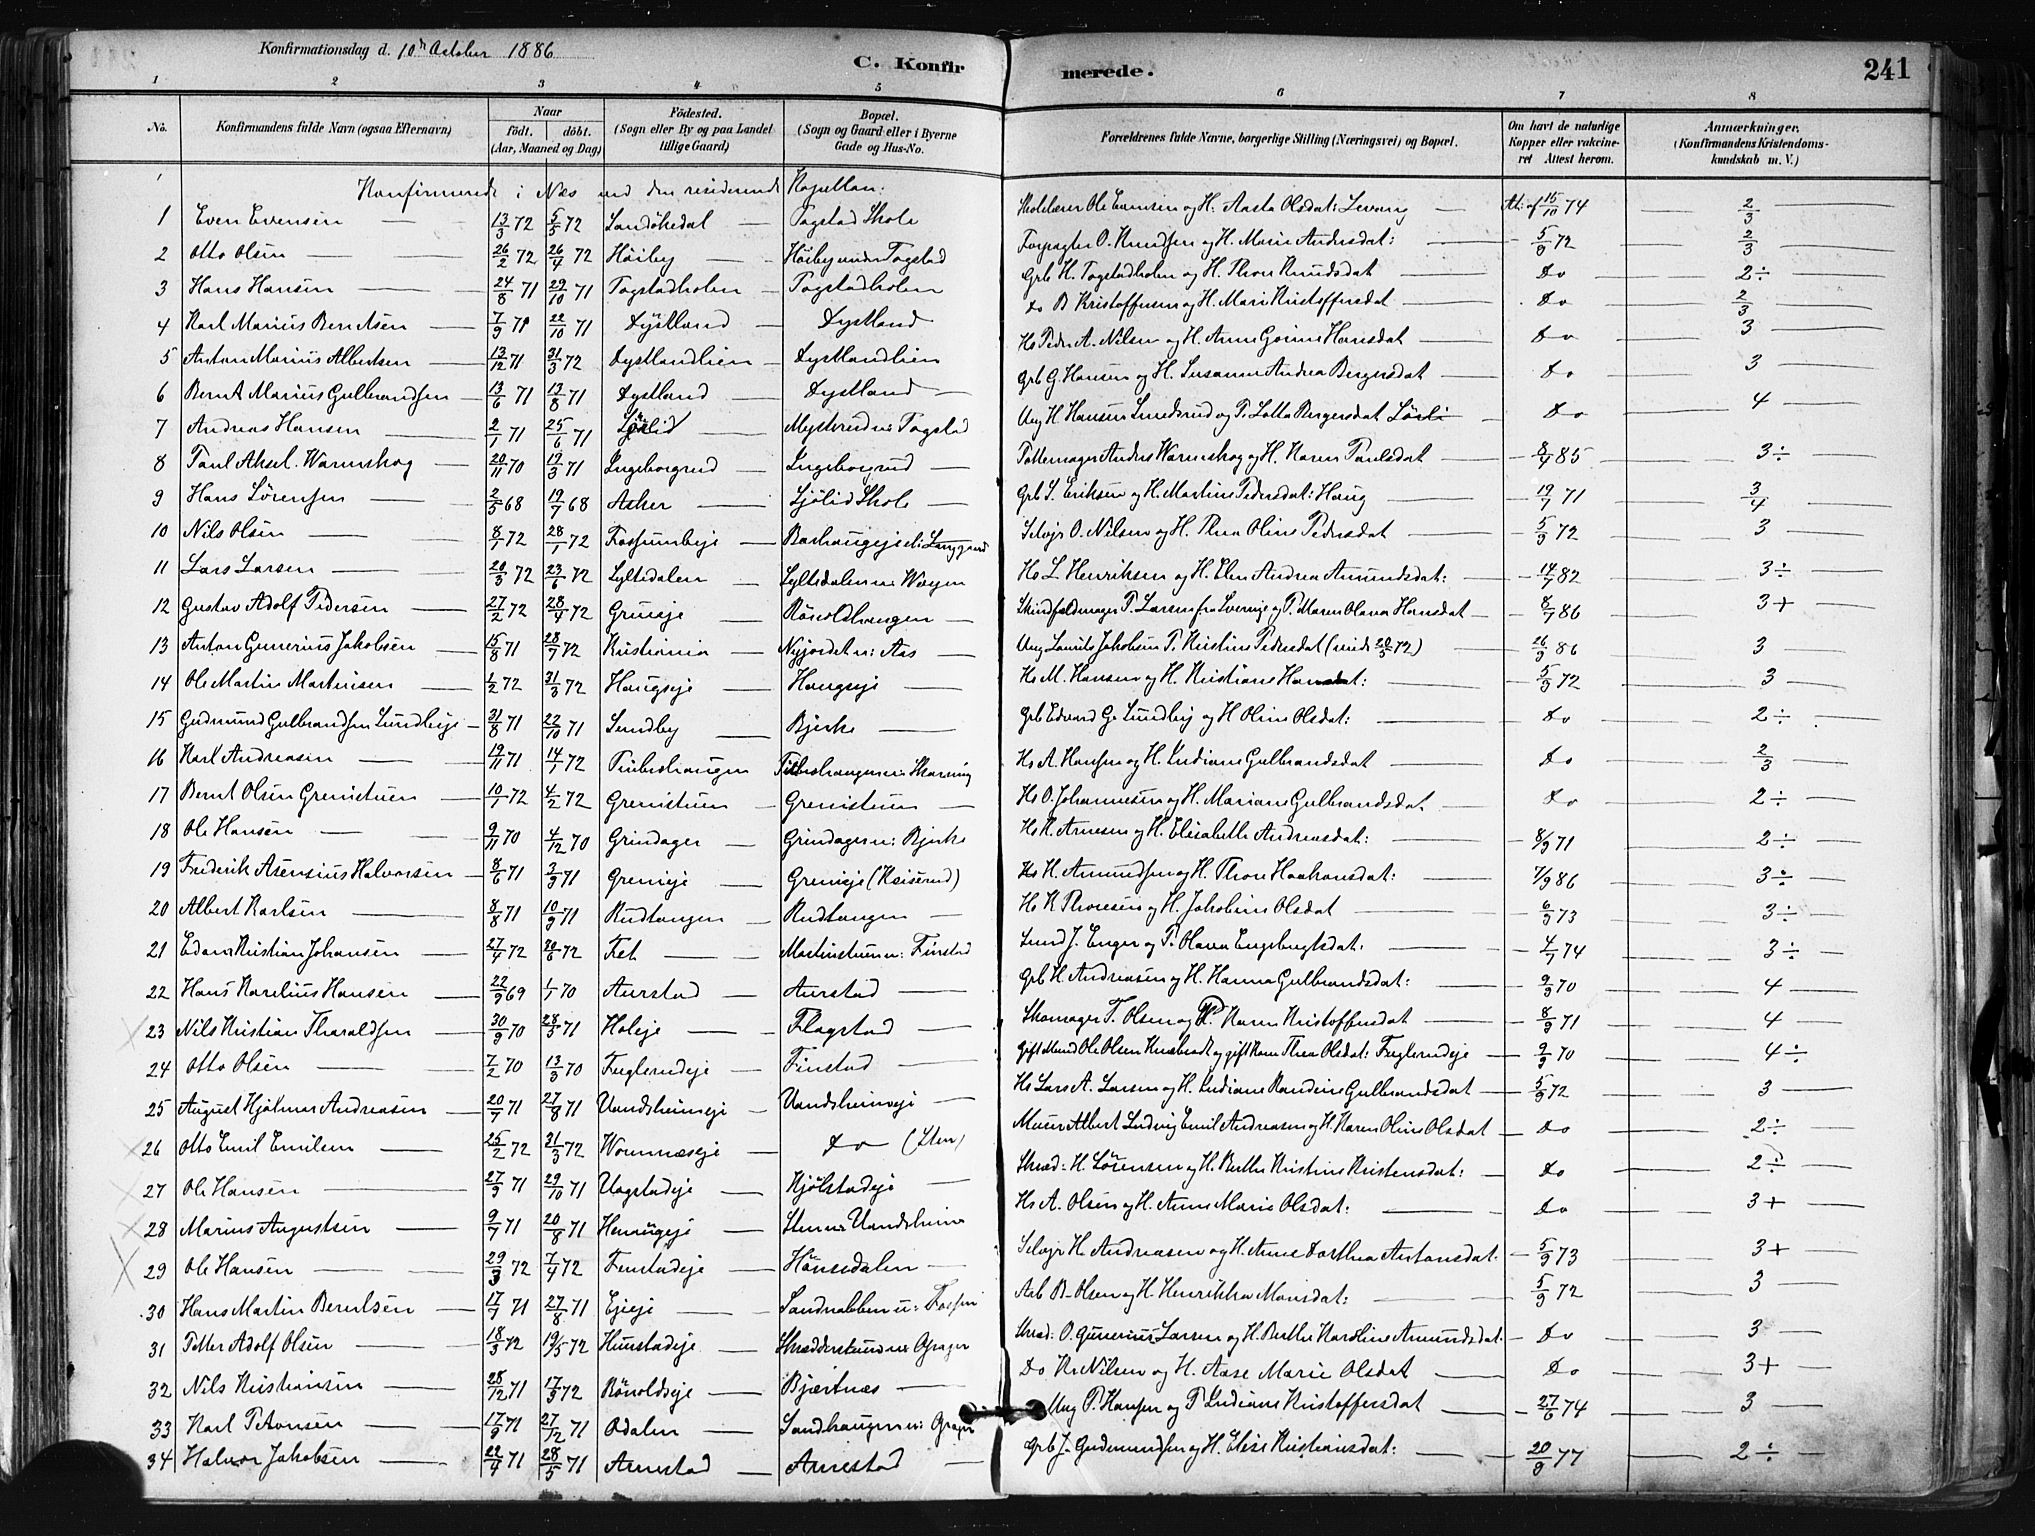 Konfirmationsdag d. 10de October 1886
C. Konfirmerede.
241
1 2 3 4 5 6 7 8
No. Konfirmandens fulde Navn (ogsaa Efternavn) Naar født. døbt. (Aar, Maaned og Dag) Födested. (Sogn eller By og paa Landet tillige Gaard) Bopæl. (Sogn og Gaard eller i Byerne Gade og Hus-No. Forældrenes fulde Navne, borgerlige Stilling (Næringsvei) og Bopæl. Om havt de naturlige Kopper eller vakcineret Attest herom. Anmærkninger. (Konfirmandens Kristendomskundskab m. V.)
Konfirmerede i Næs ved den residerende Kapellan:
1 Even Evensen 13/3 72 5/5 72 Sandökedal Togstad Skole Skolelærer Ole Evensen og H. Aasta Olsdat: Levang At: af 15/10 74 2/3
2 Otto Olsen 26/2 72 26/4 72 Höiby Höiby under Togstad Forpagter O. Knudsen og H. Marie Andersdat: 5/9 72 2/3
3 Hans Hansen 24/8 71 29/10 71 Togstadholen Togstadholen Grb H. Togstadholen og H. Thore Knudsdat Do 2÷
4 Karl Marius Berntsen 7/9 71 22/10 71 Dystland Dystland Do B Kristoffersen og H. Mari Kristoffersdat Do 2/3
5 Anton Marius Albertsen 13/12 71 31/3 72 Dystlandlien Dystlandlien Hs Peder A. Nilsen og H. Anne Gorine Hansdat Do 3
6 Bernt Marius Gulbrandsen 13/6 71 13/8 71 Dystland Dystland Grb G. Hansen og H. Susanne Andrea Bergersdat Do 3
7 Andreas Hansen 2/1 71 25/6 71 Mysterud u: Togstad Ung H. Hansen Smedsrud og P. Lotta Bergersdat Lösli Do 4
8 Paul Aksel Warmskog 20/11 70 19/3 71 Ingeborgrud Ingeborgrud Pottemager Anders Warmskog og H. Karen Paulsdat 8/4 85 3÷
9 Hans Sörensen 2/5 68 19/7 68 Asker Sjölid Skole Grb S. Eriksen og H. Martine Pedersdat: Haug 19/7 71 3/4
10 Nils Olsen 8/1 72 28/1 72 Fossumeje Selvejr O. Nilsen og H. Thea Oline Pedersdat 5/9 72 3
11 Lars Larsen 20/3 72 23/6 72 Lyltsdalen Lyltsdalen u: Wægen Hs L Henriksen og H. Elen Andrea Amundsdat: 14/7 82 3÷
12 Gustav Adolf Pedersen 27/2 72 28/4 72 Greneje Rönoldshaugen Skindfeldmager P. Larsen fra Sverrige og P. Maren Olava Hansdat 8/7 86 3+
13 Anton Gunerius Jakobsen 15/8 71 28/7 72 Kristiania Nyjordet u: Aas Ung Laurits Jakobsen P. Kristine Pedersdat 26/9 86 3
14 Ole Martin Martinsen 1/2 72 31/3 72 Haugseje Haugseje Hs M. Hansen og H. Kristiane Hansdat: 5/9 72 3
15 Gudmund Gulbrandsen Lundbeje 31/8 71 22/10 71 Lundby Bjerke Grb Edvard G. Lundbÿ og H Oline Olsdat: Do 2÷
16 Karl Andreasen 19/11 71 14/1 72 Finbeshaugen Finbeshaugen u: Skarning Hs A. Hansen og H. Indiane Gulbrandsdat Do 2/3
17 Bernt Olsen Grenistuen 10/1 72 4/2 72 Grenistuen Grenistuen Hs O. Johannesen og H. Mariane Gulbrandsdat Do 2÷
18 Ole Hansen 9/11 70 4/12 70 Grindager Grindager u: Bjerke Hs H. Arnesen og H. Elisabeth Andreasdat: 8/9 71 2÷
19 Frederik Asensius Halvorsen 8/6 71 3/9 71 Greneje Greneje (Keiserud) Hs H. Amundsen og H. Thore Haakonsdat: 7/9 86 3÷
20 Albert Karlsen 8/8 71 10/9 71 Rudtangen Rudtangen Hs K Thoresen og H. Jakobine Olsdat 6/9 73 3÷
21 Edvard Kristian Johansen 27/4 72 30/6 72 Fet Martinstuen u: Finstad Svend J. Enger og P. Olava Engebregtsdat: 4/7 74 3÷
22 Hans Karelius Hansen 22/9 69 1/1 70 Aurstad Aurstad Grb H. Andreasen og H. Hanna Gulbrandsdat: 9/9 70 4
23 Nils Kristian Tharaldsen 30/9 70 28/5 71 Holeje Flagstad Skomager T. Olsen og P. Karen Kristoffersdat 8/9 71 4
24 Otto Olsen 7/2 70 13/3 70 Fuglerudeje Finstad Gift Mand Ole Olsen Knæbradt og gift Kone Thea Olsdat: Fuglerudeje 9/9 70 4÷
25 August Hjalmar Andreasen 20/7 71 27/8 71 Uandsheimeje Uandsheimeje Hs Lars A. Larsen og H. Indiane Randine Gulbrandsdat 5/9 72 3
26 Otto Emil Emilsen 25/2 72 31/3 72 Wormnæseje Do (Sten) Murer Albert Ludvig Emil Andreasen og H. Karen Oline Olsdat Do 2÷
27 Ole Hansen 27/9 71 29/10 71 Uagstadeje Kjölstadeje Skræd: H. Sörensen og H. Berthe Kristine Kristensdat: Do 2÷
28 Marius Augustsen 9/7 71 20/8 71 Henningeje Sten u: Uandsheim Hs A. Olsen og H. Anne Marie Olsdat: Do 3+
29 Ole Hansen 29/3 72 7/4 72 Finstadeje Hönsedalen Selvejr H. Andreasen og H. Anne Dorthea Antonsdat. 5/9 73 3+
30 Hans Martin Berentsen 17/7 71 27/8 71 Ejeje Sandnabben u: Fossum Arb B. Olsen og H. Henrikka Monsdat: 5/9 72 3
31 Petter Adolf Olsen 18/3 72 19/5 72 Hunstadeje Skrædderstuen u: Ograger Skræd: O. Gunerius Larsen og H. Berthe Karoline Amundsdat. Do 3
32 Nils Kristiansen 28/12 71 17/3 72 Rönoldseje Bjærtnæs Do Kr. Nilsen og H. Aase Marie Olsdat Do 3+
33 Karl Petersen 17/9 71 27/12 71 Odalen Sandhaugen u: Ograger Ung P. Hansen og P Indiane Kristoffersdat 27/6 74 3
34 Halvor Jakobsen 22/4 71 28/5 71 Arnestad Arnestad Grb J. Gudmundsen og H. Elise Kristiansdat: 20/9 77 2÷